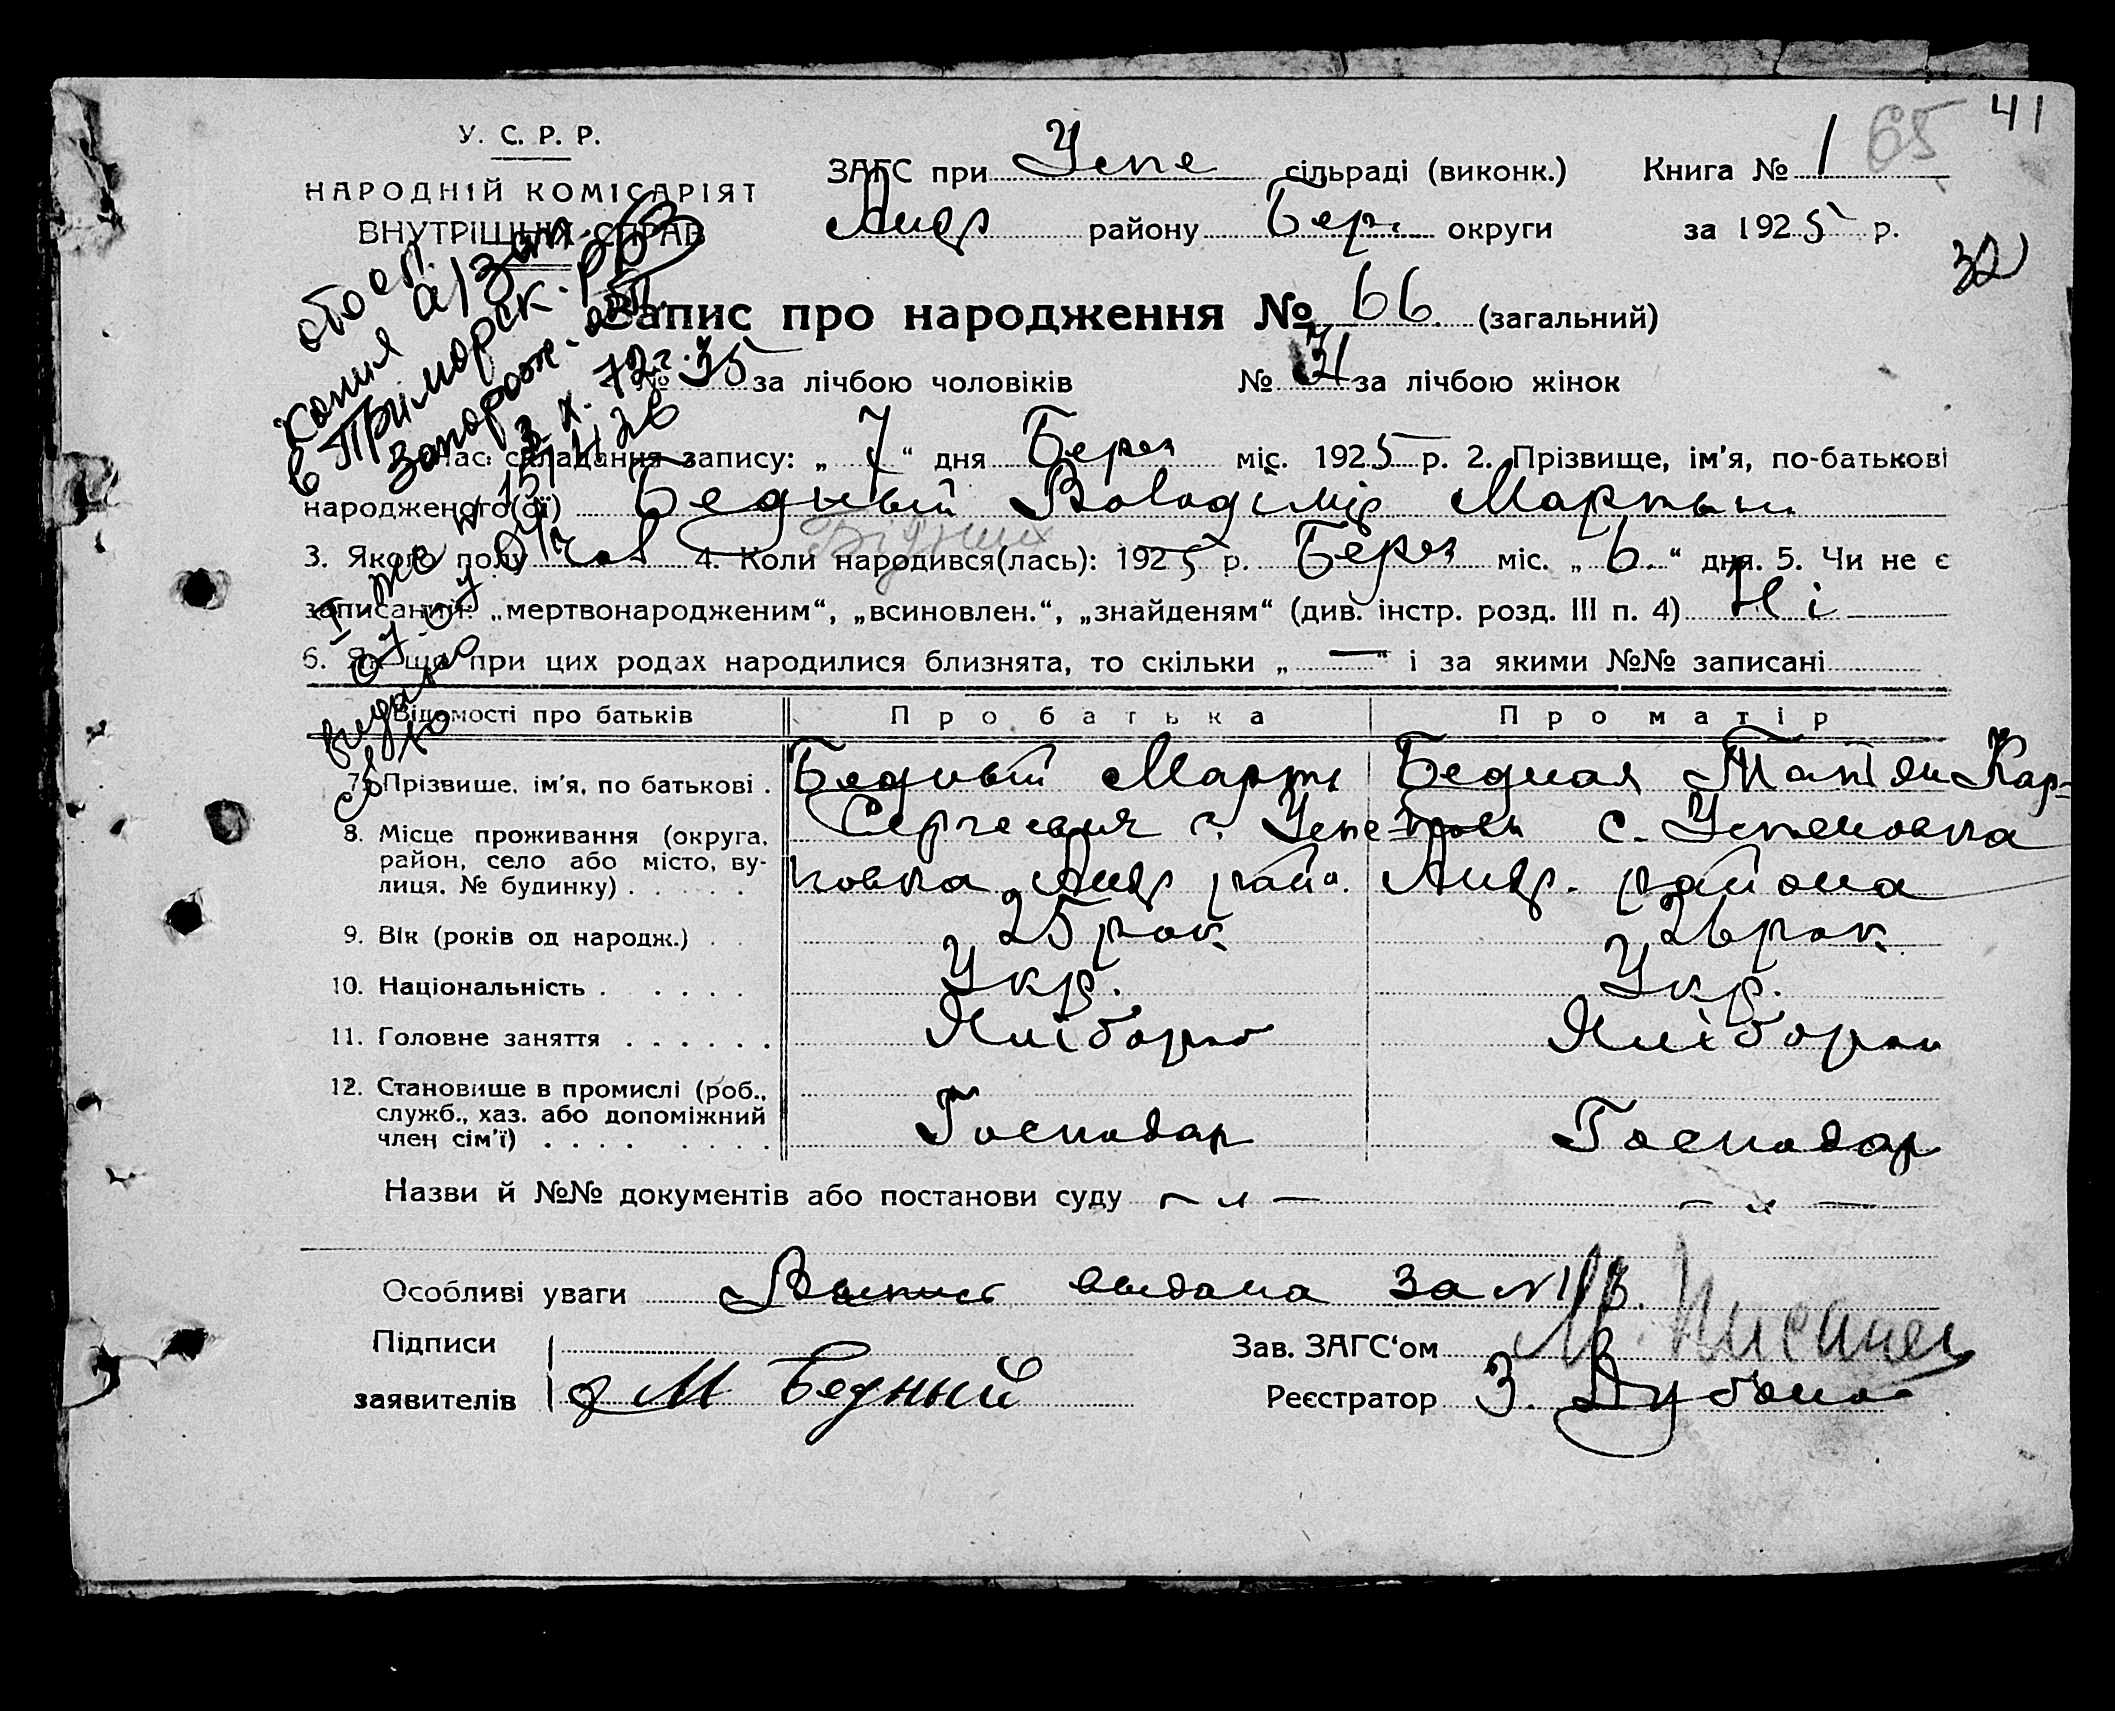 41
65
У. С. Р. Р.
НАРОДНІЙ КОМІСАРІЯТ
ВНУТРІШНІХ СПРАВ
ЗАГС при Успе сільраді (виконк.) Книга № 1
Андр району Бер. округи за 1925 р.
32
Запис про народження № 66 (загальний)
№ 35 за лічбою чоловіків № 31 за лічбою жінок
копия а/зап
в Приморск.
Запорож.
3. X. 72г.
Час складання запису: „ 7 “ дня Берез міс. 1925 р. 2. Прізвище, ім'я, по-батькові
народженого(ої) Бедный Володімір Мартын
Бідний
3. Якого полу чол 4. Коли народився(лась): 1925 р. Берез міс. „ 6. “ дня. 5. Чи не є
записаний: „мертвонародженим“, „всиновлен.“, „знайденям“ (див. інстр. розд. III п. 4) Ні
6. Як що при цих родах народилися близнята, то скільки „ — “ і за якими №№ записані
Відомості про батьків Про батька Про матір
7. Прізвише, ім'я, по батькові . Бедный Марты Бедная Татян Кар=
8. Місце проживання (округа, район, село або місто, вулиця, № будинку) . . . . . Сергеевич с. Успе- с. Успеновка
новка Андр райо. Андр. района
9. Вік (років од народж.) . . 25 рок 26 рок
10. Національність . . . . . Укр. Укр.
11. Головне заняття . . . . . . Хлібороб Хлібороб
12. Становище в промислі (роб.,
служб., хаз. або допоміжний
член сім'ї) . . . . . . . . Господар Господар
Назви й №№ документів або постанови суду — „ — — „ —
Особливі уваги Выпись выдана за №
Підписи Зав. ЗАГС‘ом
заявителів М Бедный Реєстратор З.